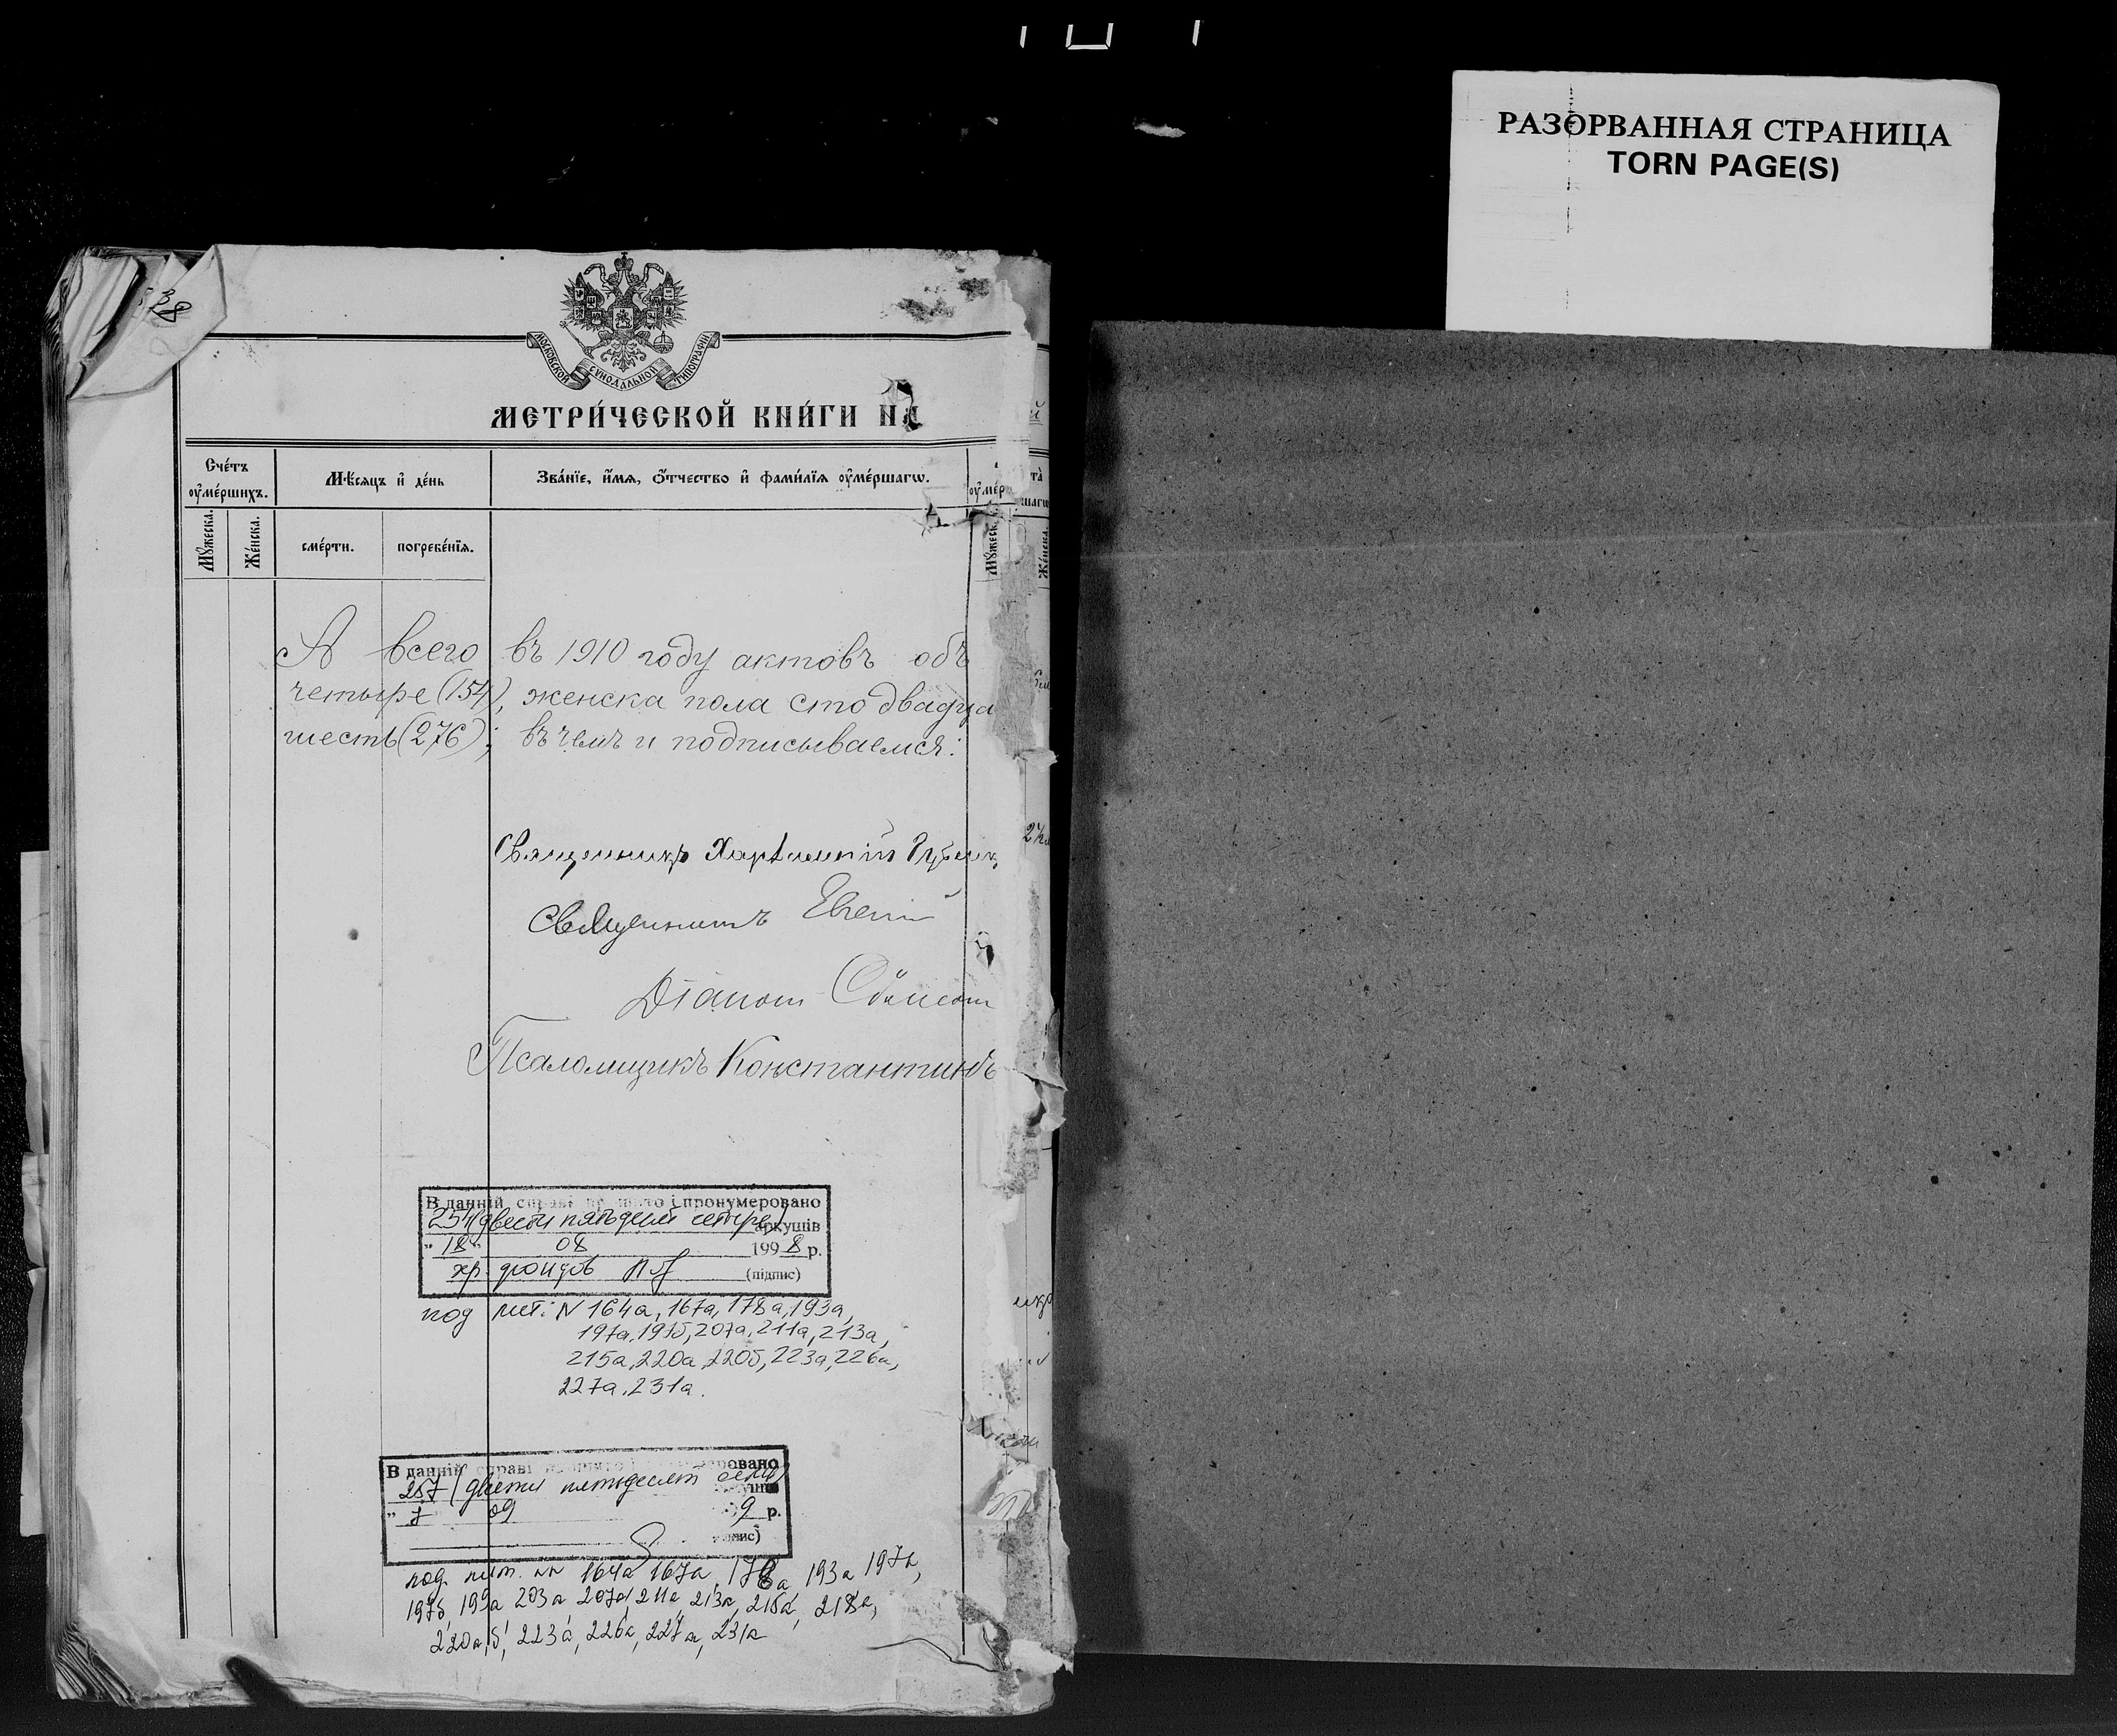 РАЗОРВАННАЯ СТРАНИЦА
TORN PAGE(S)
238
МОСКОВСКОЙ СѴНОДАЛЬНОЙ ТИПОГРАФІИ
МЕТРИ́ЧЕСКОЙ КНИ́ГИ НА
Сче́тъ ᲂу҆ме́ршихъ.
Мѣ́сяцъ и҆ де́нь
Зва́нїе, и҆́мѧ, ѻ҆́тчество и҆ фами́лїѧ ᲂу҆ме́ршагѡ.
Мꙋ́жеска.
Же́нска.
сме́рти.
погребе́нїѧ.
А всего въ 1910 году актовъ объ
четыре (154), женска пола сто двадца
шесть (276); въ чемъ и подписываемся:
Священникъ
Священникъ Евгений
Діаконъ
Псаломщикъ Константинъ
В данній справі і пронумеровано
254 (двести пятьдесят четыре) аркушів
"18" 08 1998 р.
хр. фондов (підпис)
под лит: N 164а, 167а, 178а, 193а,
197а, 197б, 207а, 211а, 213а,
215а, 220а, 220б, 223а, 226а,
227а, 231а.
В данній справі
257 (двести пятьдесят семь)
" 7 09 9 р.
под лит. 164а 167а, 178а 193а 197а,
197б, 199а 203а 207а, 211а 213а, 215а, 218а,
220а, б, 223а, 226а, 227а, 231а